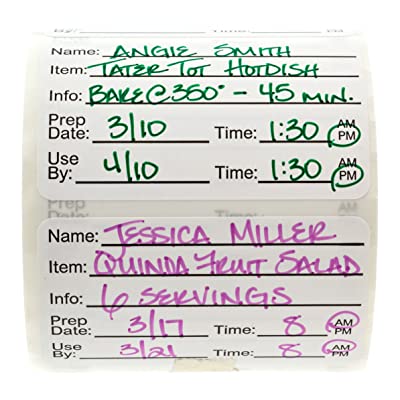 By: Time: PM
Name: ANGIE SMITH
Item: TATER TOT HOTDISH
Info: BAKE@350° - 45 MIN.
Prep Date: 3/10 Time: 1:30 AM PM
Use By: 4/10 Time: 1:30 AM PM
Prep Date: Time: AM PM
Name: JESSICA MILLER
Item: QUINOA FRUIT SALAD
Info: 6 SERVINGS
Prep Date: 3/17 Time: 8 AM PM
Use By: 3/21 Time: 8 AM PM